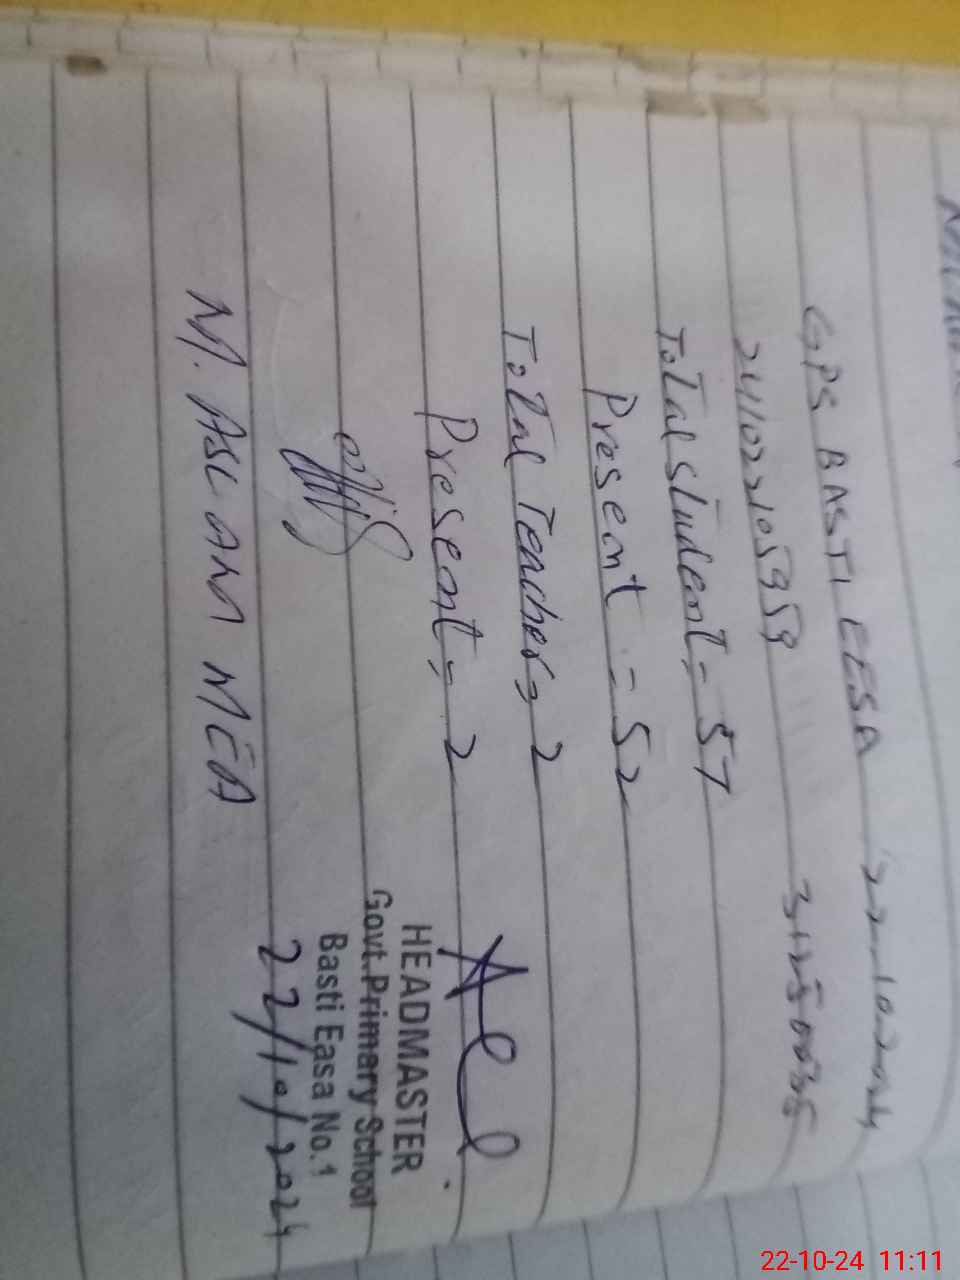 GPS BASTI EESA 22-10-2024
Total student = 57
Present = 52
Total Teacher = 2
Present = 2
HEADMASTER
Govt.Primary School
Basti Easa No.1
22/10/2024
M. ASLAM MEA
22-10-24 11:11